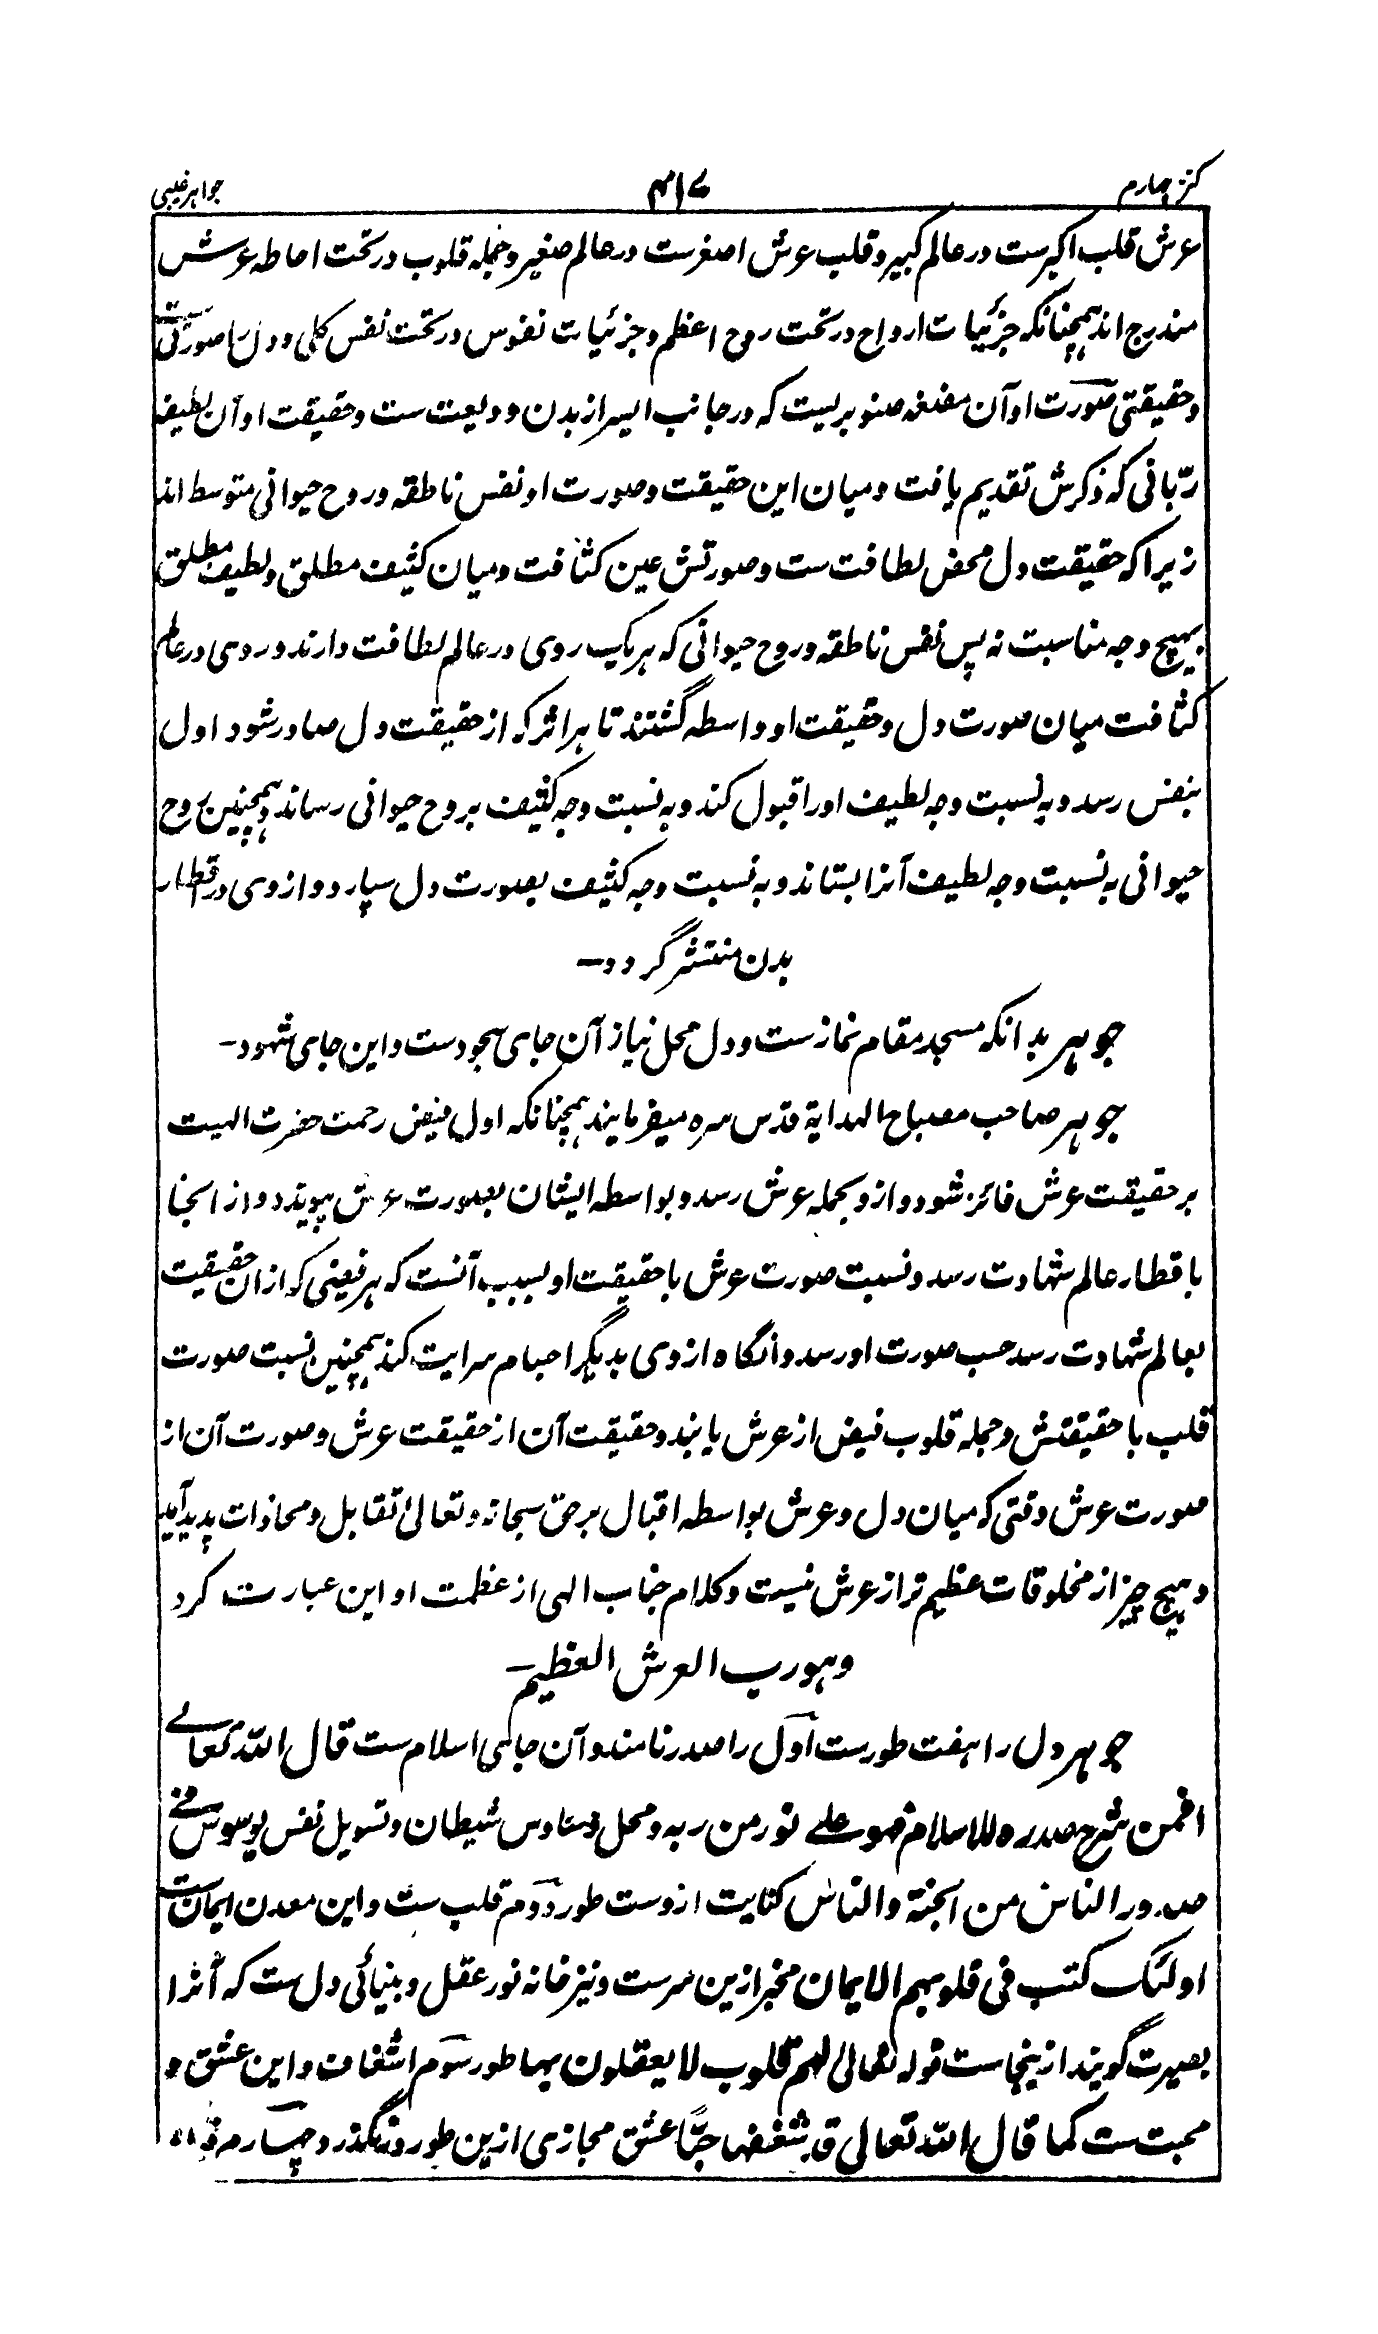 کنز چهارم ۴۱۷ جواهر غیبی
عرش قلب اکبرست در عالم کبیر و قلب عرش اصغرست در عالم صغیر و جمله قلوب در تحت احاطه عرش
مندرج اند همچنانکه جزئیات ارواح در تحت روح اعظم و جزئیات نفوس در تحت نفس کلی و دل را صورتی ست
و حقیقتی صورت او آن مضغه صنوبریست که در جانب ایسر از بدن و دیعت ست و حقیقت او آن لطیفه
ربّانی که ذکرش تقدیم یافت و میان این حقیقت و صورت او نفس ناطقه و روح حیوانی متوسط اند
زیرا که حقیقت دل محض لطافت ست و صورتش عین کثافت و میان کثیف مطلق و لطیف مطلق
بهیچ وجه مناسبت نه پس نفس ناطقه و روح حیوانی که هر یک روی در عالم لطافت دارند و روی در عالم
کثافت میان صورت دل و حقیقت او واسطه گشتند تا هر اثر که از حقیقت دل صادر شود اول
بنفس رسد و به نسبت وجه لطیف او را قبول کند و به نسبت وجه کثیف بروح حیوانی رساند و همچنین روح
حیوانی به نسبت وجه لطیف آنرا بستاند و به نسبت وجه کثیف بصورت دل سپارد و از وی در اقطار
بدن منتشر گردد ـ
جوهر بدانکه مسجد مقام نمازست و دل محل نیاز آن جای سجودست و این جای شهود ـ
جوهر صاحب مصباح الهدایة قدس سره میفرمایند همچنانکه اول فیض رحمت حضرت الهیت
بر حقیقت عرش فائز شود و ازو بحمله عرش رسد و بواسطه ایشان بصورت عرش پیوندد و از انجا
باقطار عالم شهادت رسد و نسبت صورت عرش با حقیقت او بسبب آنست که هر فیضی که از ان حقیقت
بعالم شهادت رسد حسب صورت او رسد و آنگاه از وی بدیگر اجسام سرایت کند همچنین نسبت صورت
قلب با حقیقتش و جمله قلوب فیض از عرش یابند و حقیقت آن از حقیقت عرش و صورت آن از
صورت عرش وقتی که میان دل و عرش بواسطه اقبال بر حق سبحانه و تعالی تقابل و محاذات پدید آید
و هیچ چیز از مخلوقات عظیم تر از عرش نیست و کلام جناب الهی از عظمت او این عبارت کرد
وهو رب العرش العظیم ـ
جوهر دل را هفت طورست اول را صدر نامند و آن جای اسلام ست قال الله تعالے
افمن شرح صدره للاسلام فهو علے نور من ربه و محل وساوس شیطان و تسویل نفس یوسوس فے
صدور الناس من الجنة والناس کنایت ازوست طور دوم قلب ست و این معدن ایمان ست
اولئک کتب فی قلوبهم الایمان مخبر ازین سرست و نیز خانه نور عقل و بینائی دل ست که آنرا
بصیرت گویند ازینجاست قوله تعالی لهم قلوب لا یعقلون بها طور سوم اشغاف و این عشق و
محبت ست کما قال الله تعالی قد شغفها حبّا عشق مجازی ازین طور در نگذرد چهارم